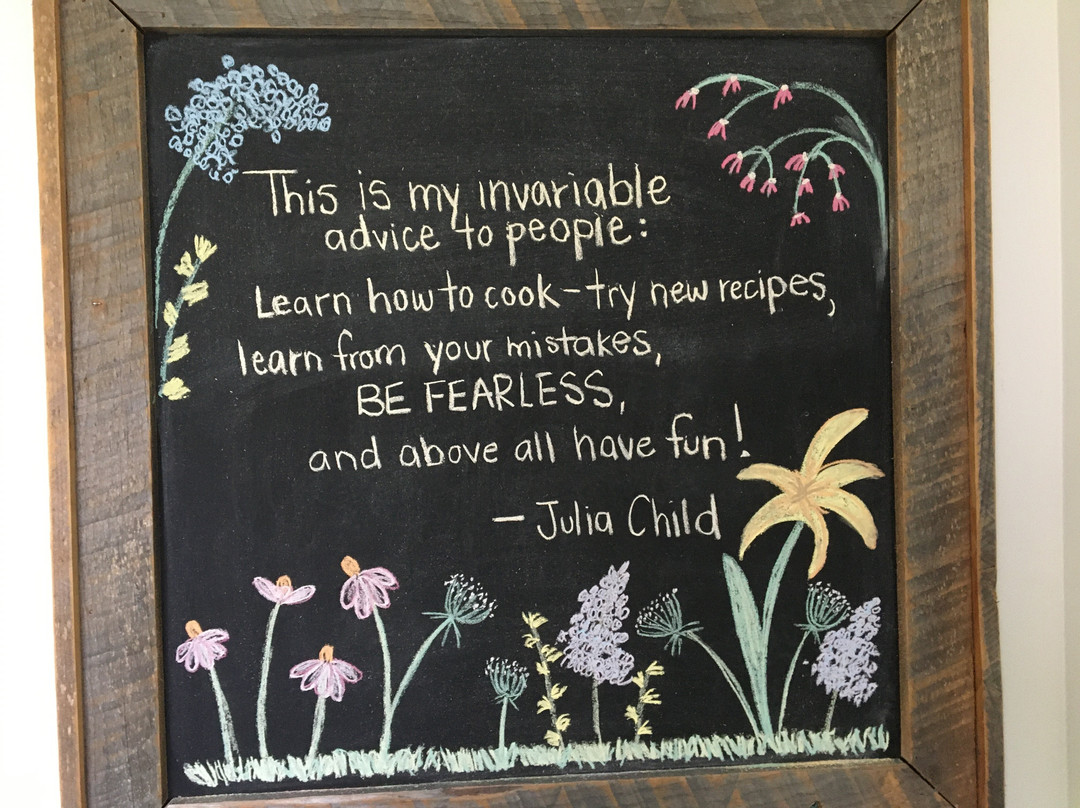 This is my invariable
advice to people:
Learn how to cook – try new recipes,
learn from your mistakes,
BE FEARLESS,
and above all have fun!
– Julia Child